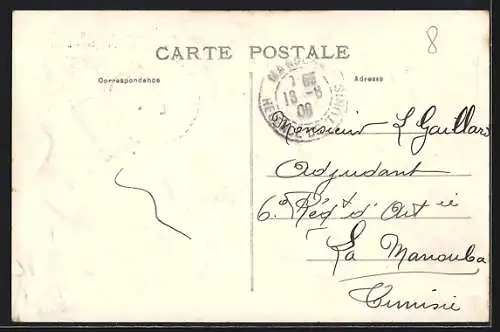 8
CARTE POSTALE
Correspondance
Adresse
18 -8
09
RÉGENCE DE TUNIS
Monsieur L Gaillard
Adjudant
6e Régt d'Artie
La Manouba
Tunisie